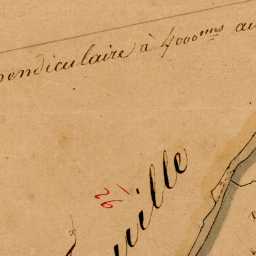 pendiculaire à 4000mes au
uille